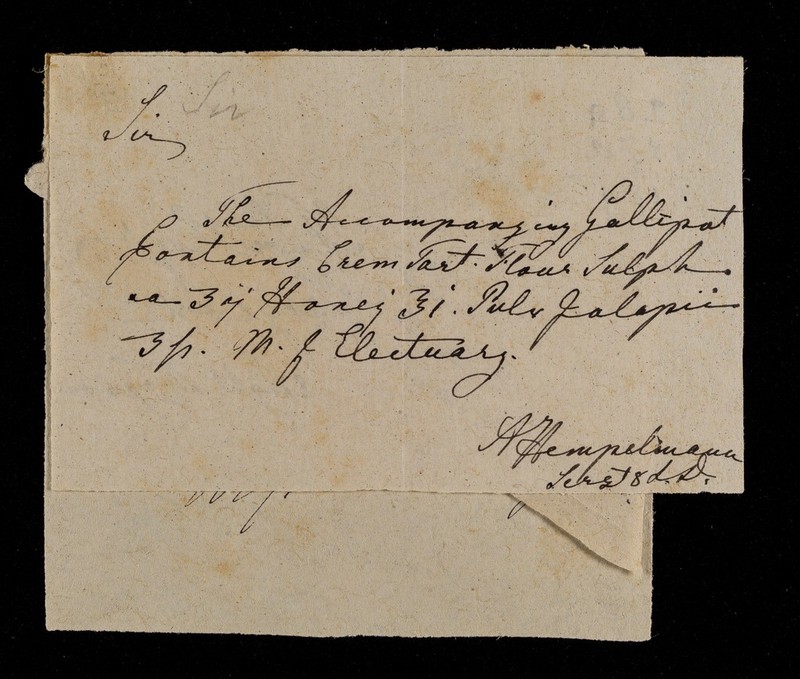 Sir
Sir
The Accompanying Gallipot
Contains Crem Tart. Flour Sulph
aa ʒij Honey ℥i. Pulv Jalapii
ʒſs. M. f Electuary.
A Hempelmann